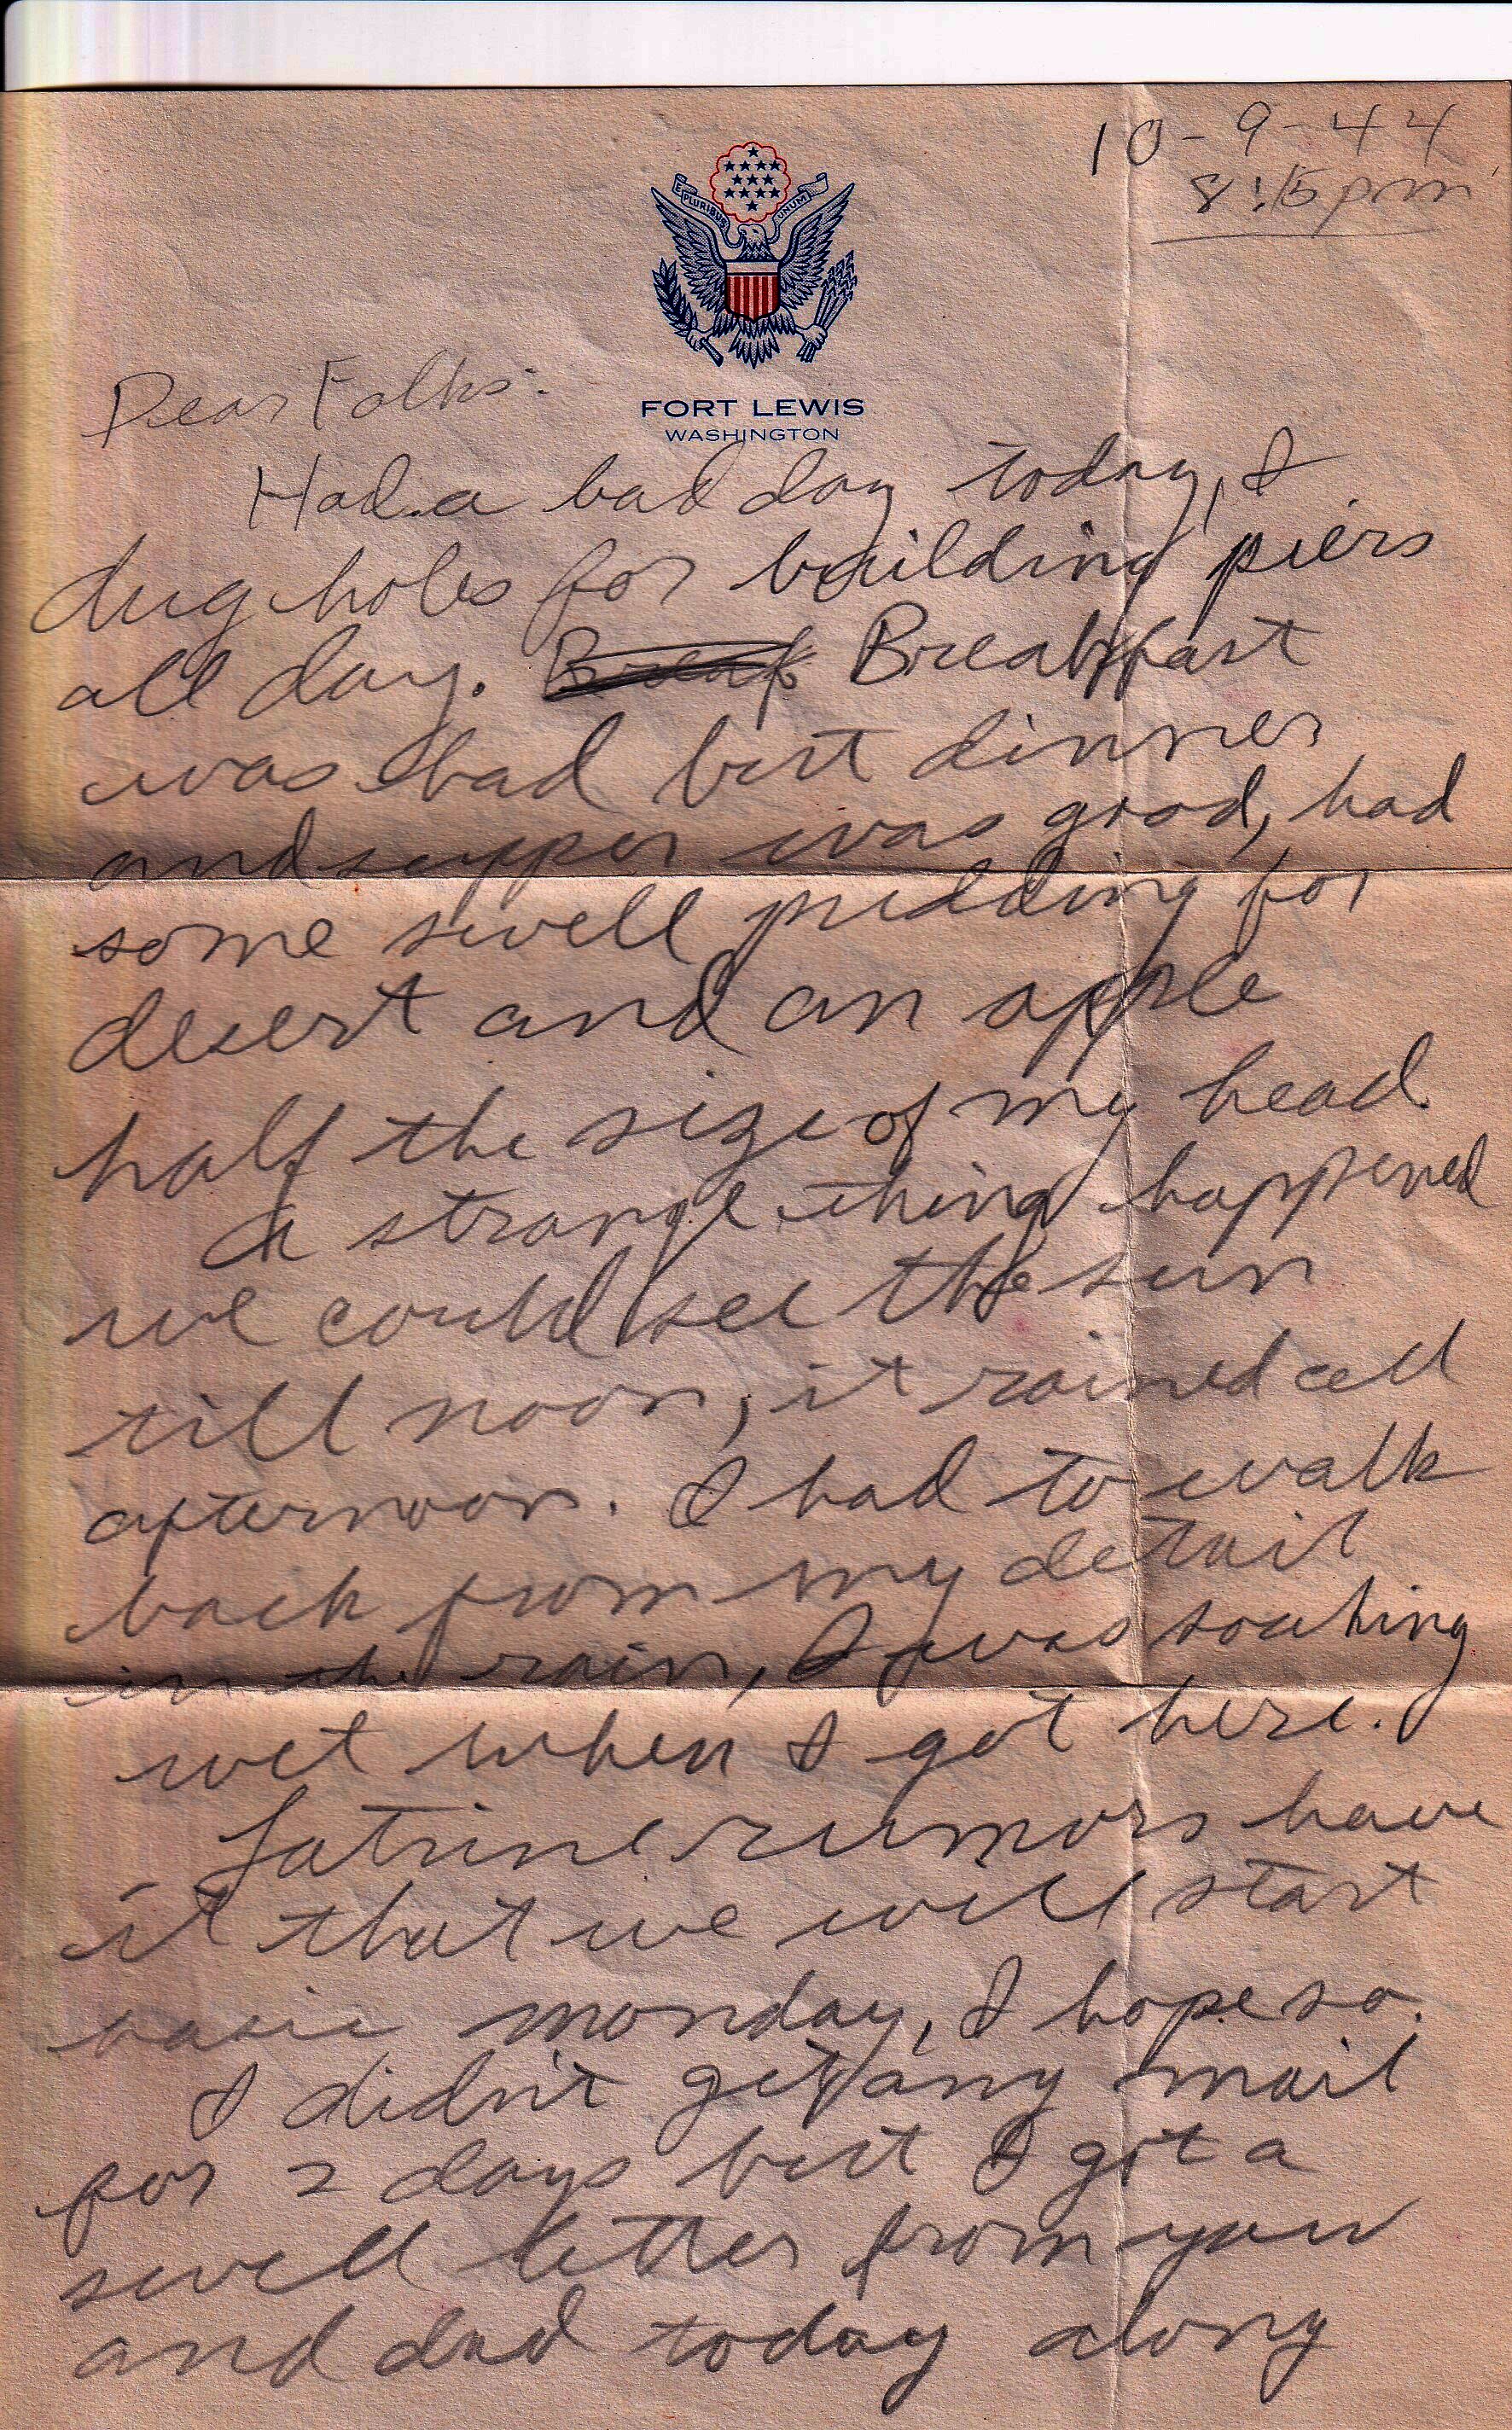 10-9-44
8:15pm
E PLURIBUS UNUM
FORT LEWIS
WASHINGTON
Dear Folks:
Had a bad day today, I
dug holes for building piers
all day. Breakfast
was bad but dinner
and supper was good, had
some swell pudding for
desert and an apple
half the size of my head
A strange thing happened
we could see the sun
till noon, it rained all
afternoon. I had to walk
back from my detail
in the rain, I was soaking
wet when I got here.
Latrine rumors have
it that we will start
basic monday, I hope so.
I didn't get any mail
for 2 days but I got a
swell letter from you
and dad today along